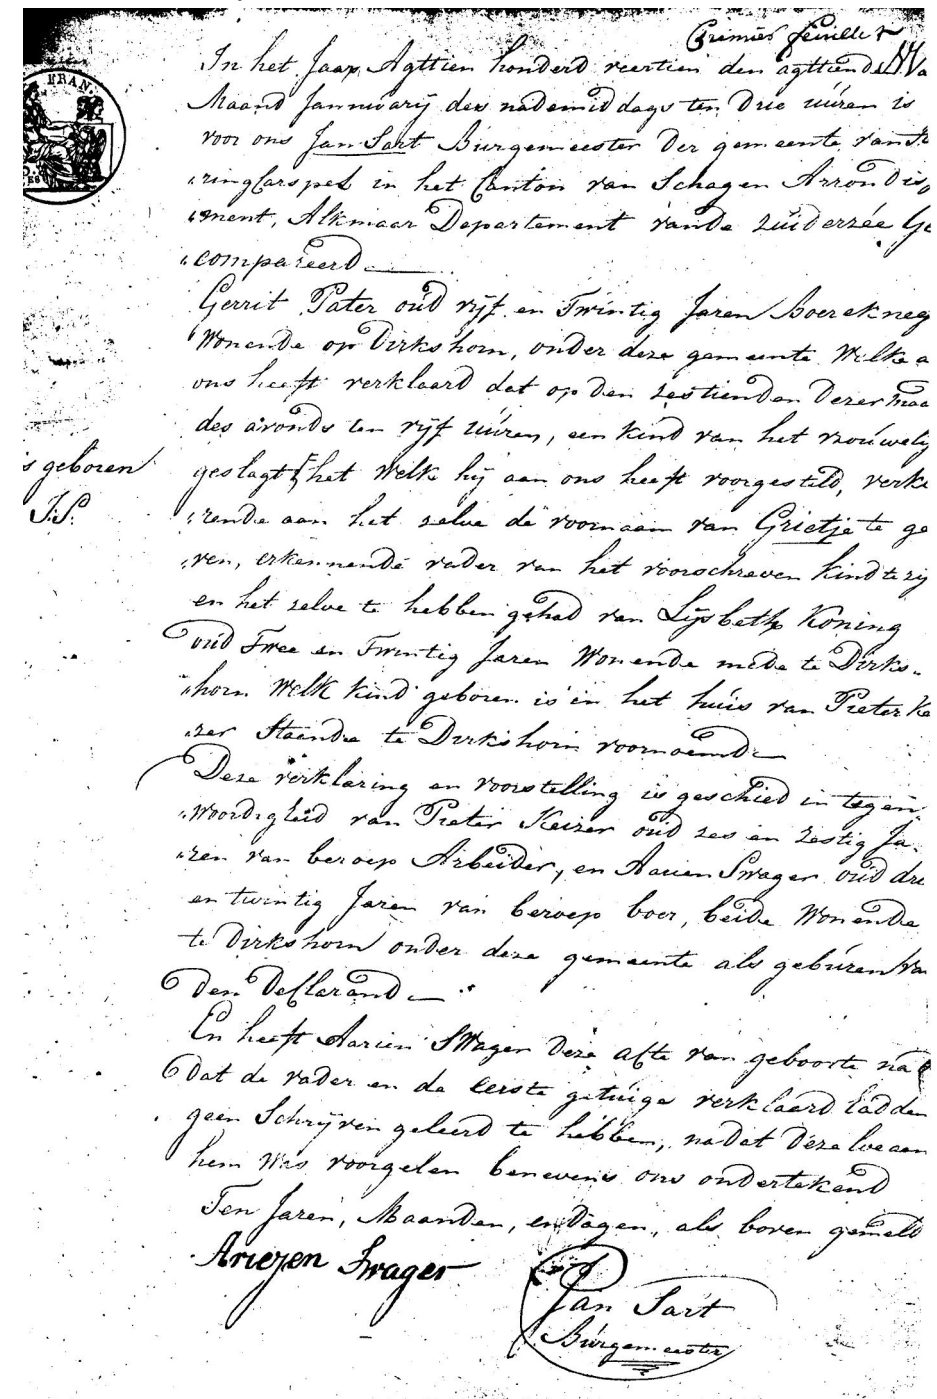 Premier feuillet
In het Jaar Agttien honderd veertien den agttiende
Maand Jannuarij des nademiddags ten Drie uúren is
voor ons Jan Sart Burgemeester der gemeente van
ringcarspel in het Canton van Schagen Arrondis
ment, Alkmaar Departement vande zuiderzée Ge
compareerd
Gerrit Pater oúd vijf en Twintig Jaren Boerekneg
Wonende op Dirkshorn, onder deze gemeente Welke a
ons heeft verklaard dat op den zestienden dezer maa
des avonds ten vijf úúren, een kind van het vroúwelij
geslagt het Welk hij aan ons heeft voorgesteld, verkl
rende aan het zelve de voornaam van Grietje te ge
ven, erkennende vader van het voorschreven kind te zij
en het zelve te hebben gehad van Lijsbeth Koning
oúd Twee en Twintig Jaren Wonende mede te Dirks
horn Welk kind geboren is in het húis van Pieter Ke
zer Staande te Dirkshorn voornoemd
Deze verklaring en voorstelling is geschied in tegen
woordigheid van Pieter Keizer oúd zes en zestig Ja
ren van beroep Arbeider, en Aarien Swager oúd dri
en twintig Jaren van beroep boer, beide Wonende
te Dirkshorn onder deze gemeente als gebúren va
den Declarand
En heeft Aarien Swager Deze acte van geboorte na
dat de vader en de eerste getúige verklaard hadden
geen Schrijven geleerd te hebben, nadat dezelve aan
hem Was voorgelezen benevens ons ondertekend
Ten Jaren, Maanden, en dagen, als boven gemeld
Ariejen Swager
Jan Sart
Búrgemeester
FRAN
is geboren
J:S: